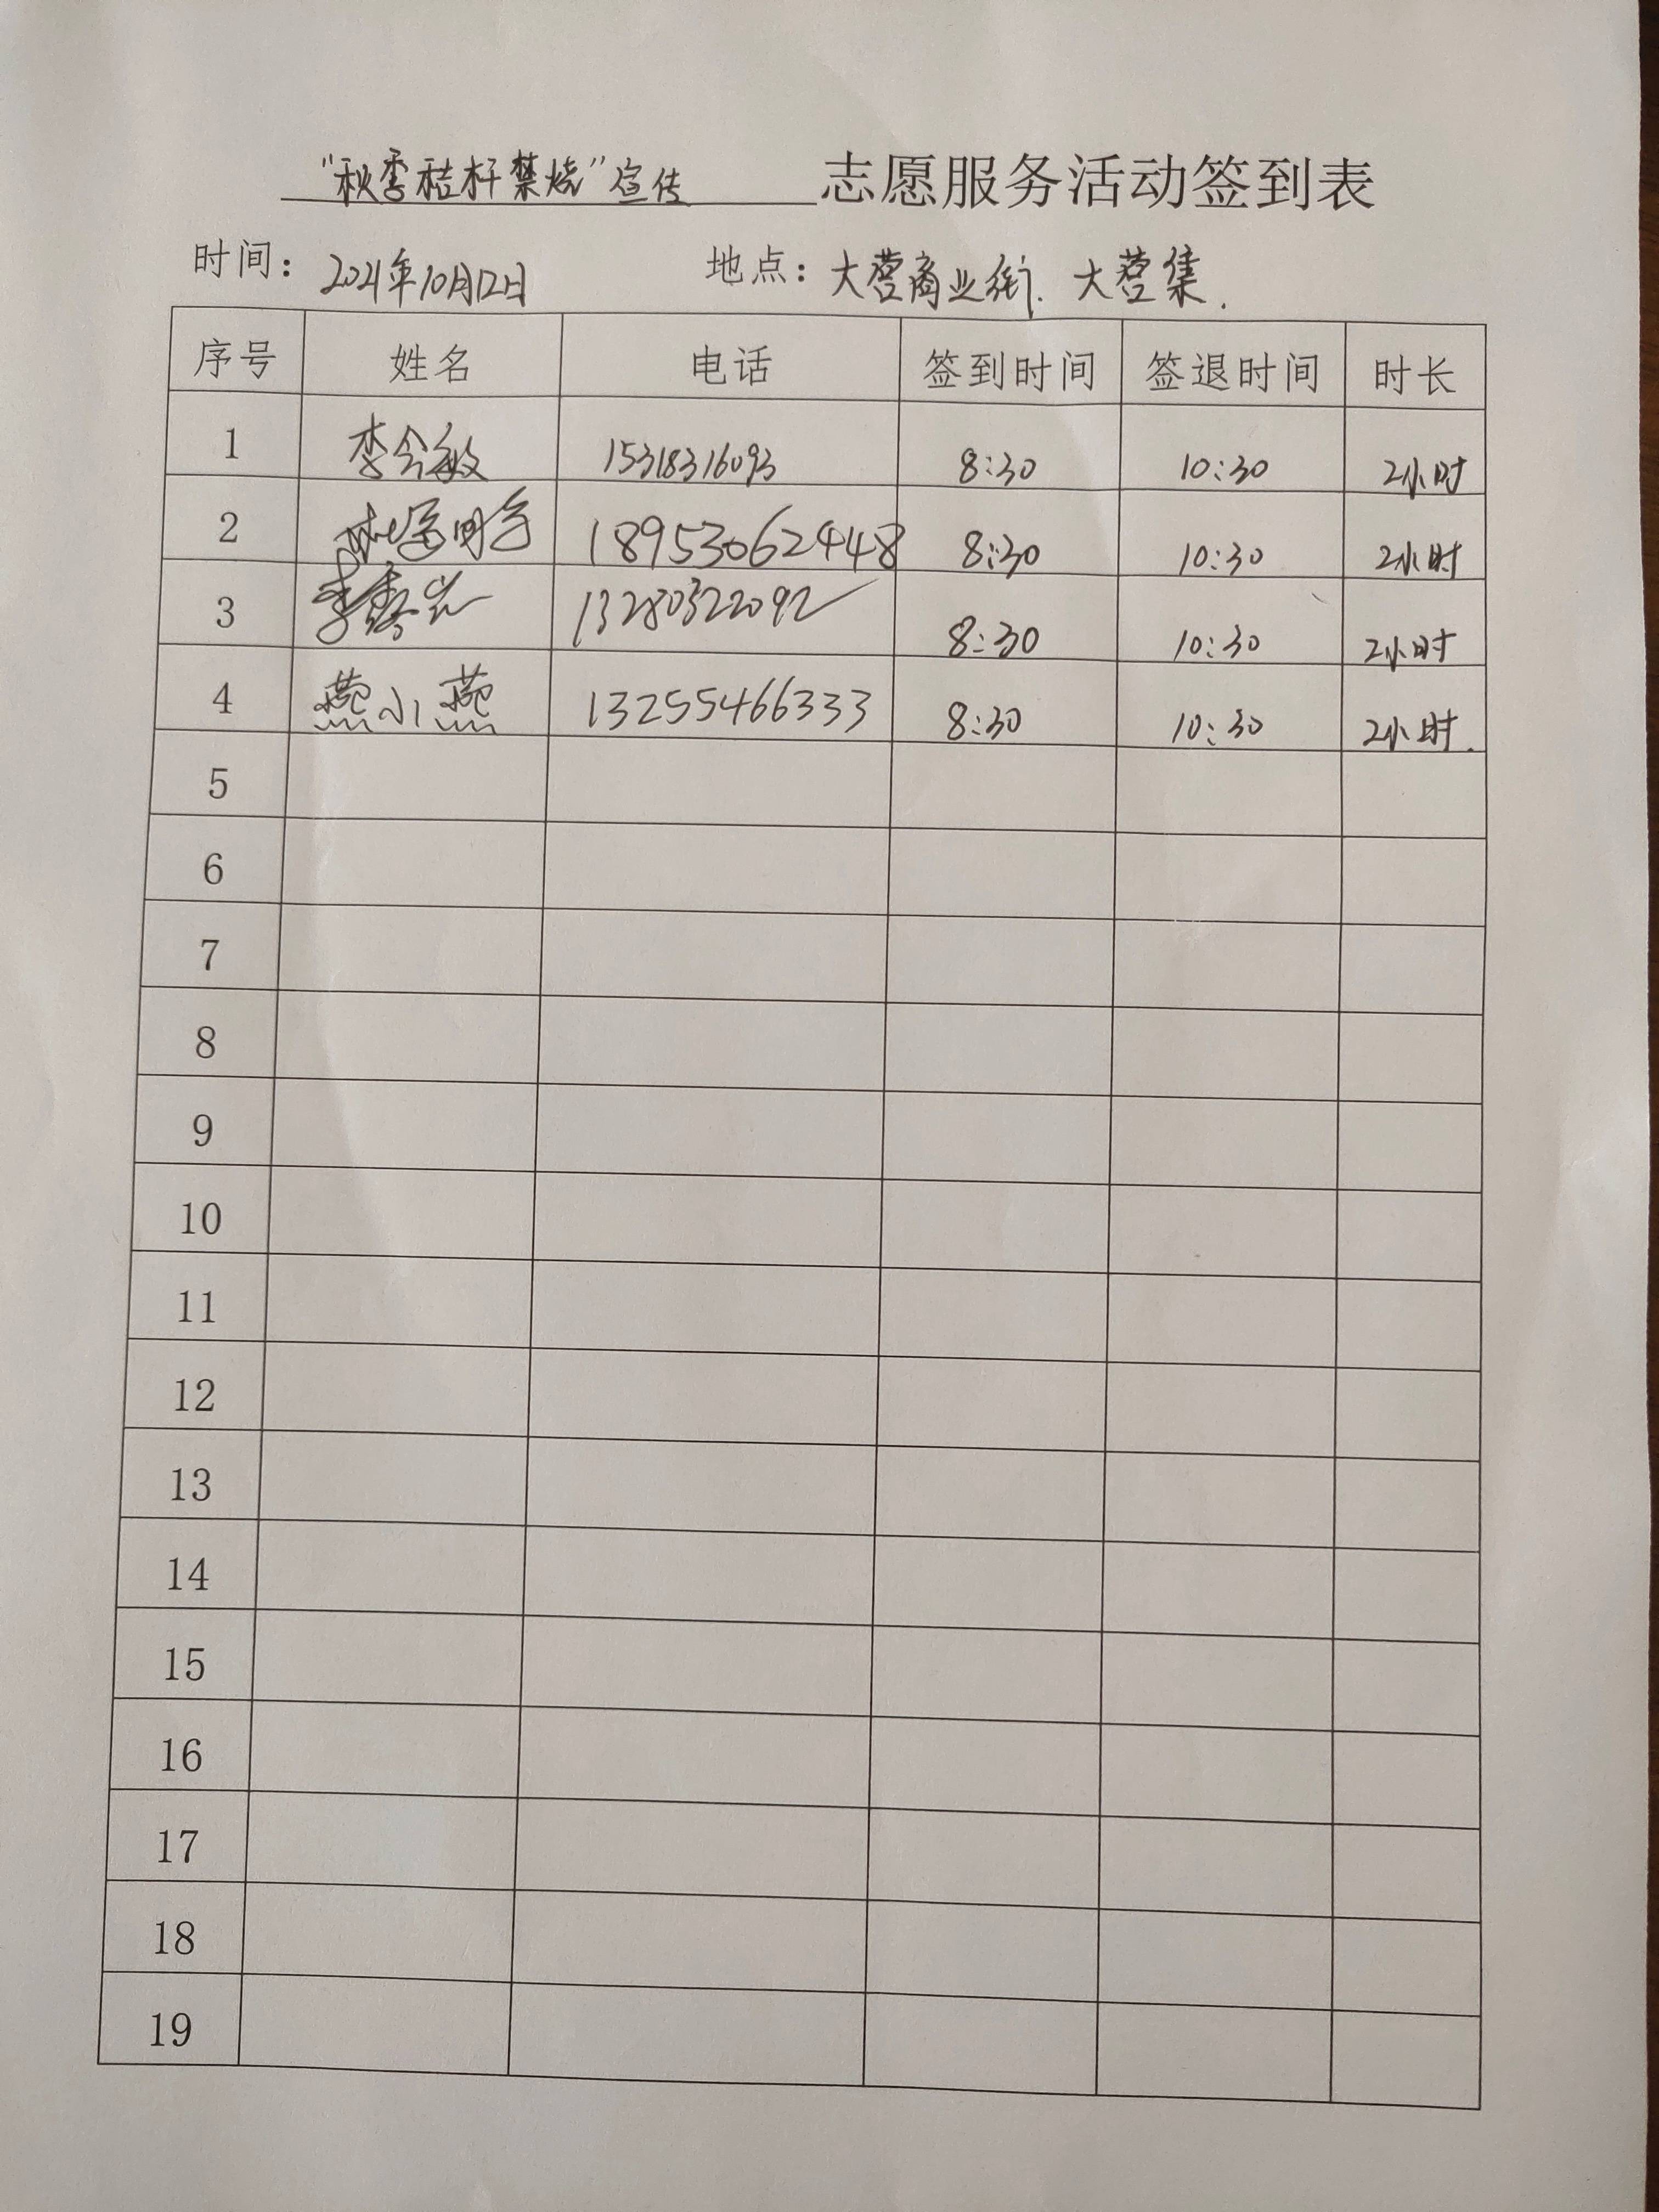 “秋季秸秆禁烧”宣传 志愿服务活动签到表
时间：2021年10月12日 地点：大营商业街、大营集.
序号 姓名 电话 签到时间 签退时间 时长
1 李令敏 15318316093 8:30 10:30 2小时
2 18953062448 8:30 10:30 2小时
3 李 13280322092 8:30 10:30 2小时
4 燕小燕 13255466333 8:30 10:30 2小时.
5
6
7
8
9
10
11
12
13
14
15
16
17
18
19